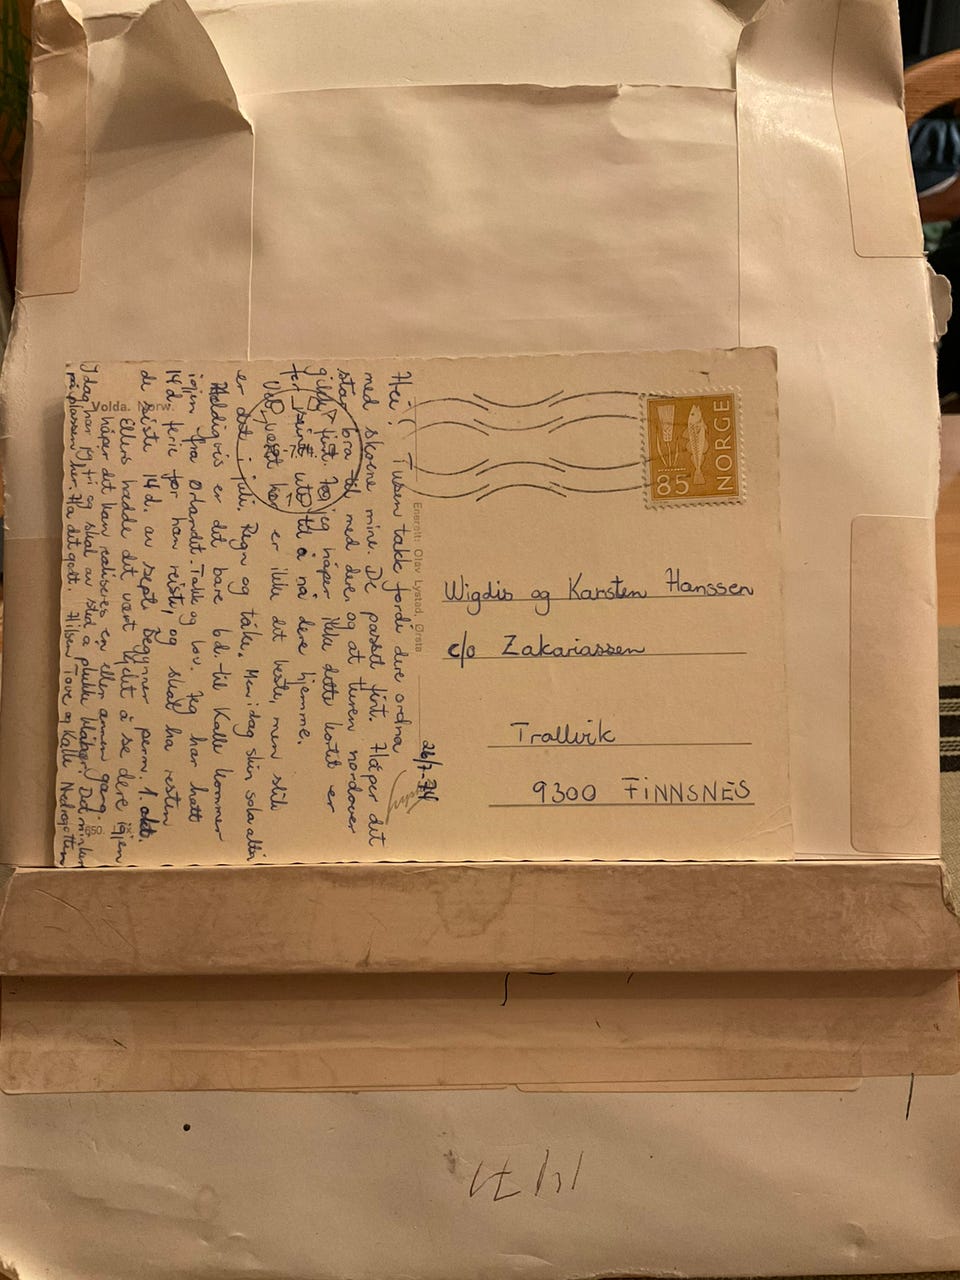 Hei! Tusen takk fordi dere ordna
med skoene mine. De passet fint. Håper det
står bra til med dere, og at turen nordover
gikk fint. jeg håper ikke dette kortet er
for seint ute til å nå dere hjemme.
Været her er ikke det beste, men slik
er det i juli. Regn og tåke. Men idag skin sola allin
Heldigvis er det bare 6 d. til Kalle kommer
igjen fra Utlandet. Takk og lov. Jeg har hatt
14 d. ferie før han reiste, og skal ha resten
de siste 14 d. av sept. Begynner perm. 1. okt.
Ellers hadde det vært kjekt å se dere igjen
håper det kan realiseres en eller annen gang.
Idag har jeg fri og skal av sted å plukke blåbær. Det
på plassen her. Ha det godt. Hilsen Tove og Kalle
Volda. Norw.
650.
Enerett: Olav Lystad, Ørsta
26/7-74
NORGE
85
Wigdis og Karsten Hanssen
c/o Zakariassen
Trollvik
9300 FINNSNES